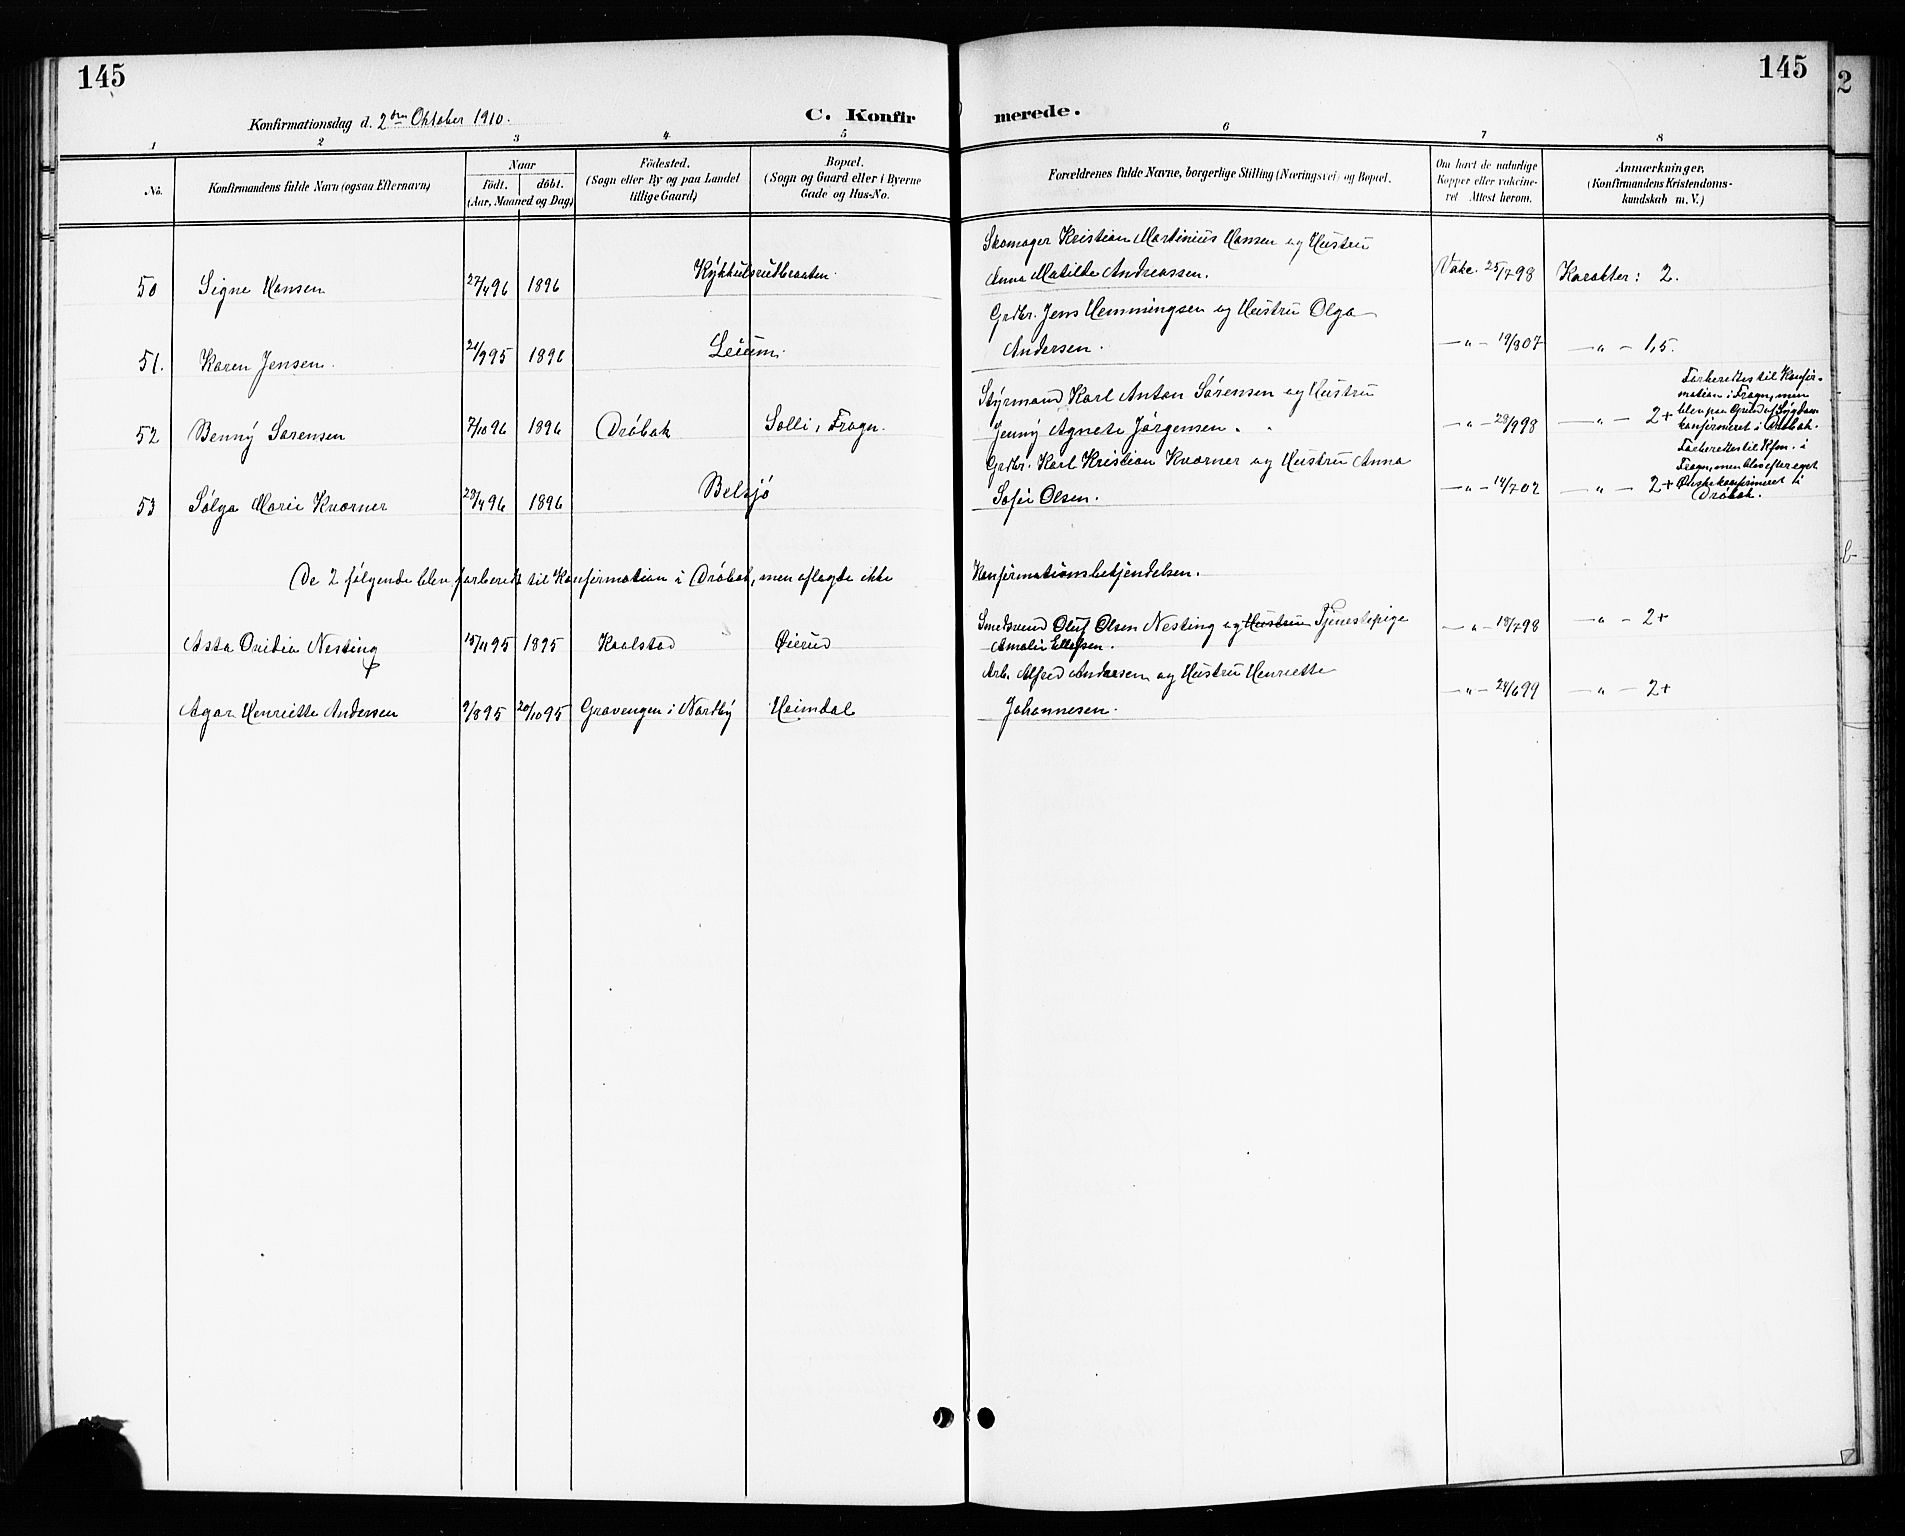 145
145
2
Konfirmationsdag d. 2den Oktober 1910.
C. Konfir merede.
1 2 3 4 5 6 7 8
No.
Konfirmandens fulde Navn (ogsaa Efternavn)
Naar
födt. döbt.
(Aar, Maaned og Dag)
Födested.
(Sogn eller By og paa Landet
tillige Gaard)
Bopæl.
(Sogn og Gaard eller i Byerne
Gade og Hus-No.
Forældrenes fulde Navne, borgerlige Stilling (Næringsvei) og Bopæl.
Om havt de naturlige
Kopper eller vakcine-
ret Attest herom.
Anmærkninger,
(Konfirmandens Kristendoms-
kundskab m. V.)
Skomager Kristian Martinius Hansen og Hustru
50 Signe Hansen 27/4 96 1896 Kykkulsrudbraaten Anna Matilde Andreassen. Vakc. 25/7 98 Karakter: 2.
Grdbr. Jens Hemmingsen og Hustru Olga
51. Karen Jensen. 21/9 95 1896 Leium. Andersen. —„— 19/8 07 —„— 1,5.
Styrmand Karl Anton Sörensen og Hustru
52 Benny Sörensen 7/10 96 1896 Dröbak Solli i Frogn. Jenny Agnete Jörgensen. —„— 28/9 98 —„— 2+
Forberedtes til Konfir-
mation i Frogn, men
blev paa Grund af Sygdom
konfirmeret i Dröbak.
Grdbr. Karl Kristian Kvarner og Hustru Anna
53 Sölga Marie Kvarner 28/4 96 1896 Belsjö Sofie Olsen. —„— 14/7 02 —„— 2+
Forberedtes til Kfm. i
Frogn, men blev efter eget
Ønske konfirmeret i
Dröbak.
De 2 fölgende blev forberedt til Konfirmation i Dröbak, men aflagde ikke Konfirmationsbekjendelsen.
Smedsvend Oluf Olsen Nesting og Hustru Tjenestepige
Asta Ovidia Nesting 15/11 95 1895 Kaalstad Øierud Amalie Ellefsen. —„— 18/7 98 —„— 2+
Arb. Alfred Andersen og Hustru Henriette
Agar Henriette Andersen 9/8 95 20/10 95 Gravengen i Nordby Heimdal Johannesen. —„— 24/6 99 —„— 2+